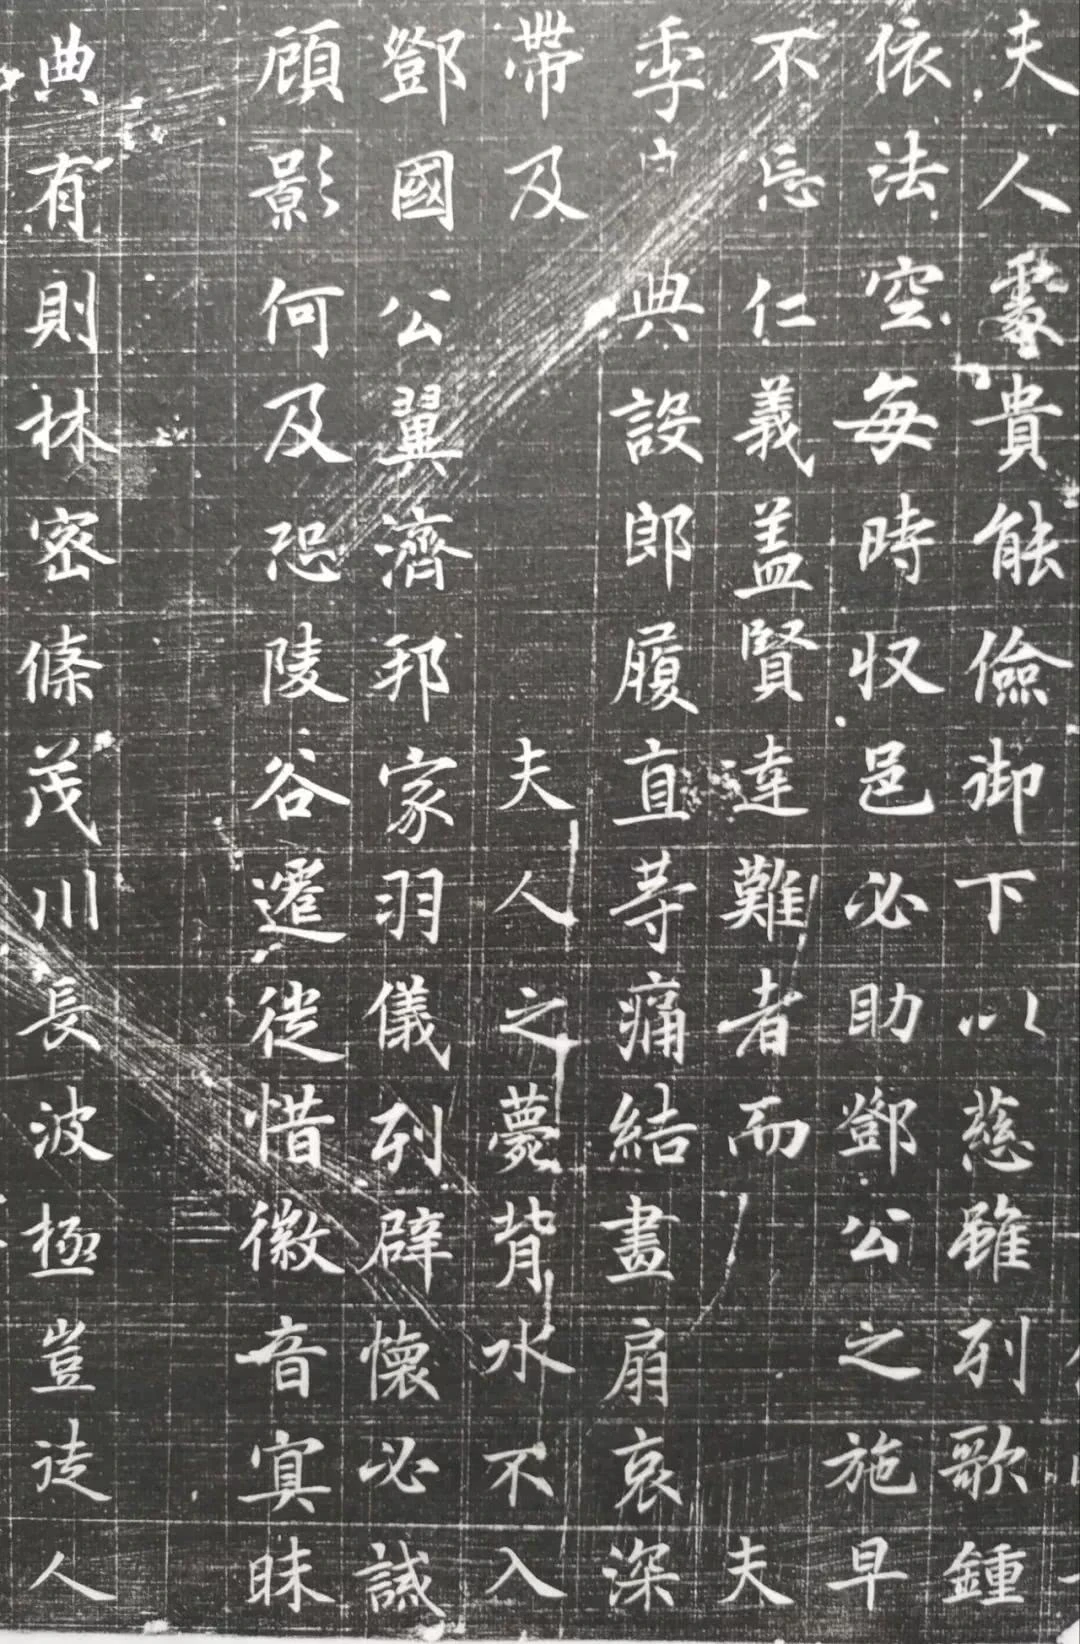 夫人處貴能儉御下以慈雖列歌鍾
依法空每時收邑必助鄧公之施早
不忘仁義盖賢達難者而 夫
季 典設郎履直等痛結畫扇哀深
帶及 夫人之薨背水不入
鄧國公翼濟邦家羽儀列辟懷必誠
顧影何及恐陵谷遷徙惜徽音寘昧
典有則林密條茂川長波極豈徒人